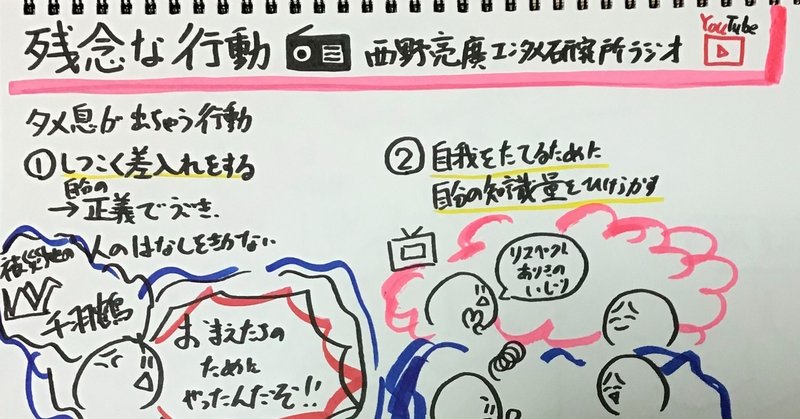 残念な行動
西野亮廣エンタメ研究所ラジオ
YouTube
タメ息が出ちゃう行動
① しつこく差入れをする
自分の
→正義でうごき、
人のはなしをきかない
被災地の
千羽鶴
おまえたちの
ために
やったんだぞ!!
② 自我をたてるために
自分の知識量をひけらかす
リスペクト
ありきの
いじり